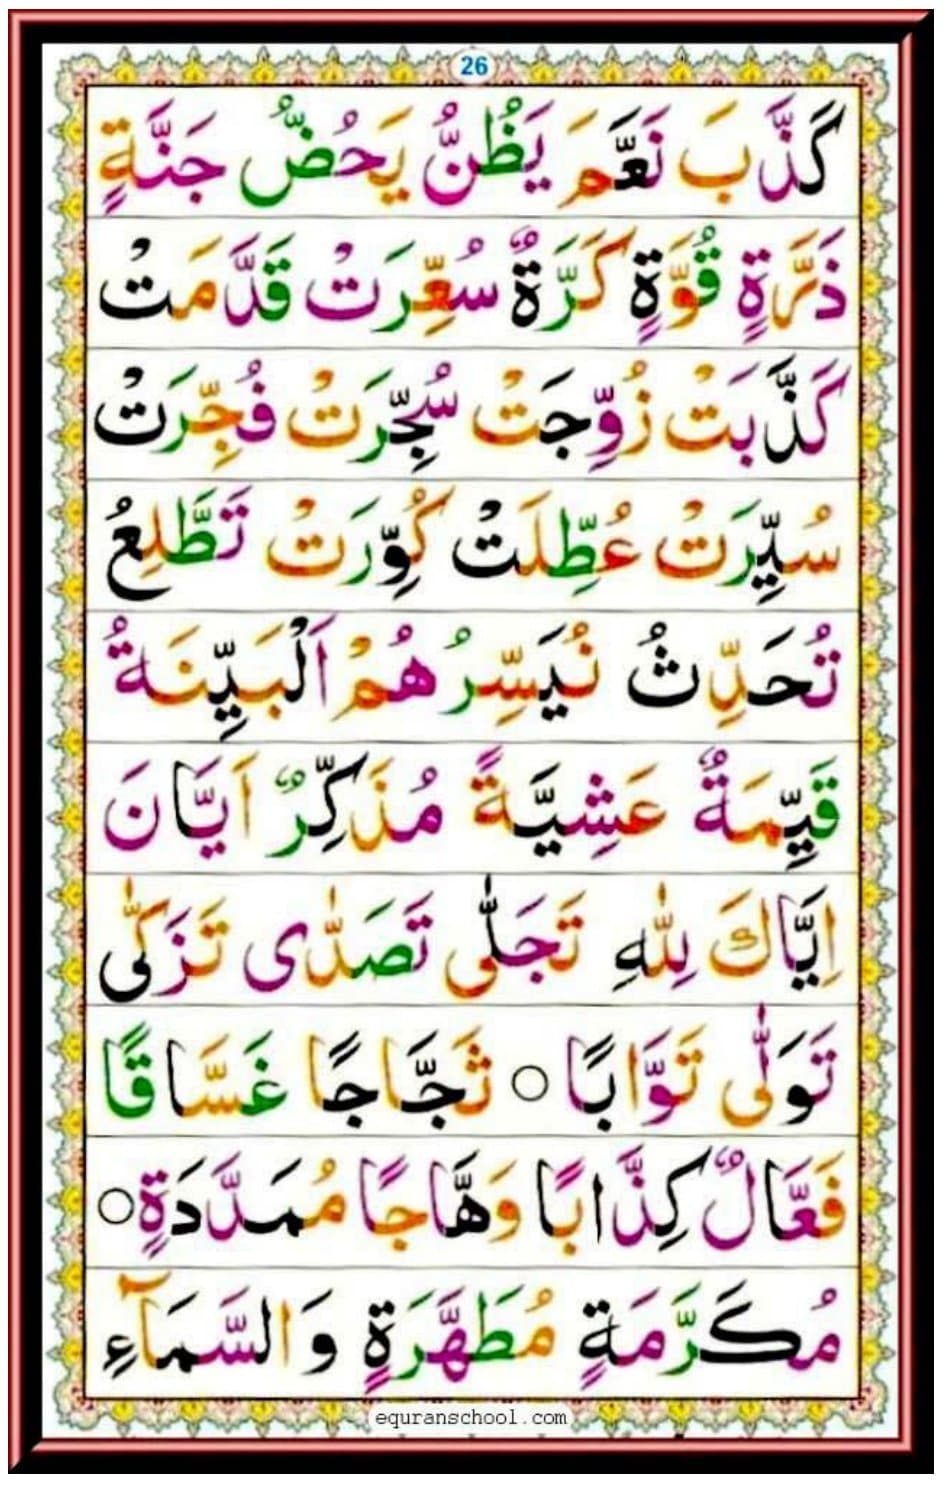 26
كَذَّبَ نَعَّمَ يَظُنُّ يَحُضُّ جَنَّةٍ
ذَرَّةٍ قُوَّةٍ كَرَّةٌ سُعِّرَتْ قَدَّمَتْ
كَذَّبَتْ زُوِّجَتْ سُجِّرَتْ فُجِّرَتْ
سُيِّرَتْ عُطِّلَتْ كُوِّرَتْ تَطَّلِعُ
تُحَدِّثُ نُيَسِّرُهُمْ اَلْبَيِّنَةُ
قَيِّمَةٌ عَشِيَّةً مُذَكِّرٌ اَيَّانَ
اِيَّاكَ لِلّٰهِ تَجَلّٰى تَصَدّٰى تَزَكّٰى
تَوَلّٰى تَوَّابًا ○ ثَجَّاجًا غَسَّاقًا
فَعَّالٌ كِذَّابًا وَهَّاجًا مُمَدَّدَةٍ ○
مُكَرَّمَةٍ مُطَهَّرَةٍ وَالسَّمَآءِ
equranschool.com